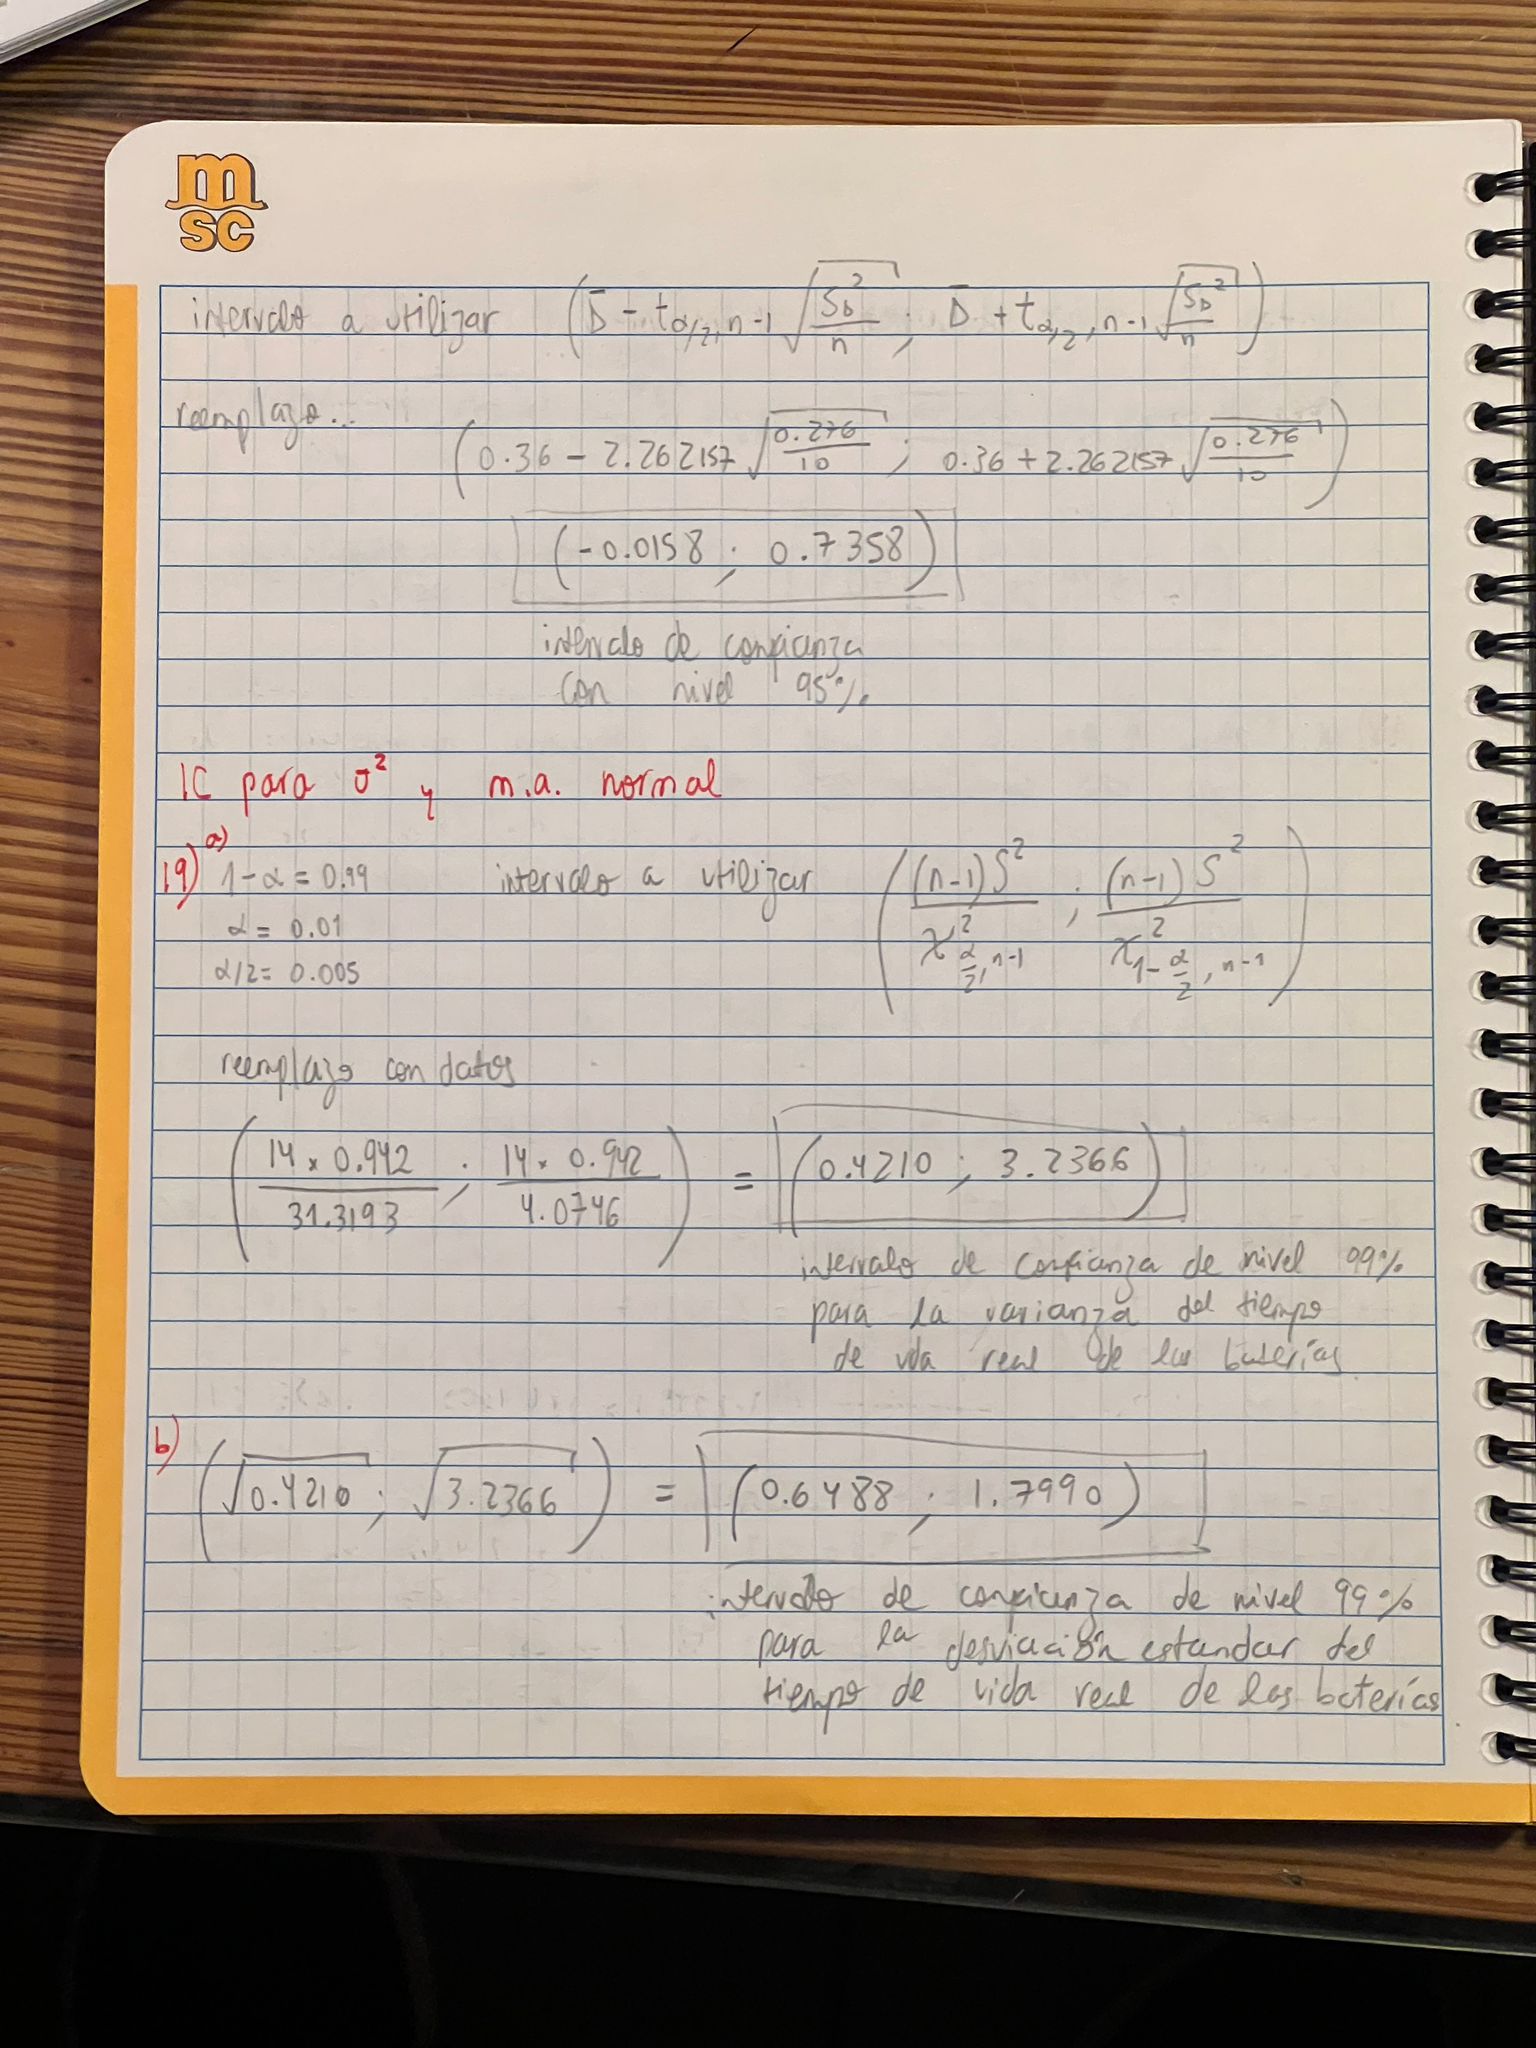 msc
intervalo a utilizar ( D̄ - t α/2, n-1 √(S_D²/n) ; D̄ + t α/2, n-1 √(S_D²/n) )
reemplazo...
( 0.36 - 2.262157 √(0.276/10) ; 0.36 + 2.262157 √(0.276/10) )
(-0.0158 ; 0.7358)
intervalo de confianza
con nivel 95%
IC para σ² y m.a. normal
19) a)
1-α = 0.99 intervalo a utilizar ( (n-1)S² / χ² α/2, n-1 ; (n-1)S² / χ² 1-α/2, n-1 )
α = 0.01
α/2 = 0.005
reemplazo con datos
( 14 × 0.942 / 31.3193 ; 14 × 0.942 / 4.0746 ) = (0.4210 ; 3.2366)
intervalo de confianza de nivel 99%
para la varianza del tiempo
de vida real de las baterías
b) ( √0.4210 ; √3.2366 ) = (0.6488 ; 1.7990)
intervalo de confianza de nivel 99%
para la desviación estandar del
tiempo de vida real de las baterías